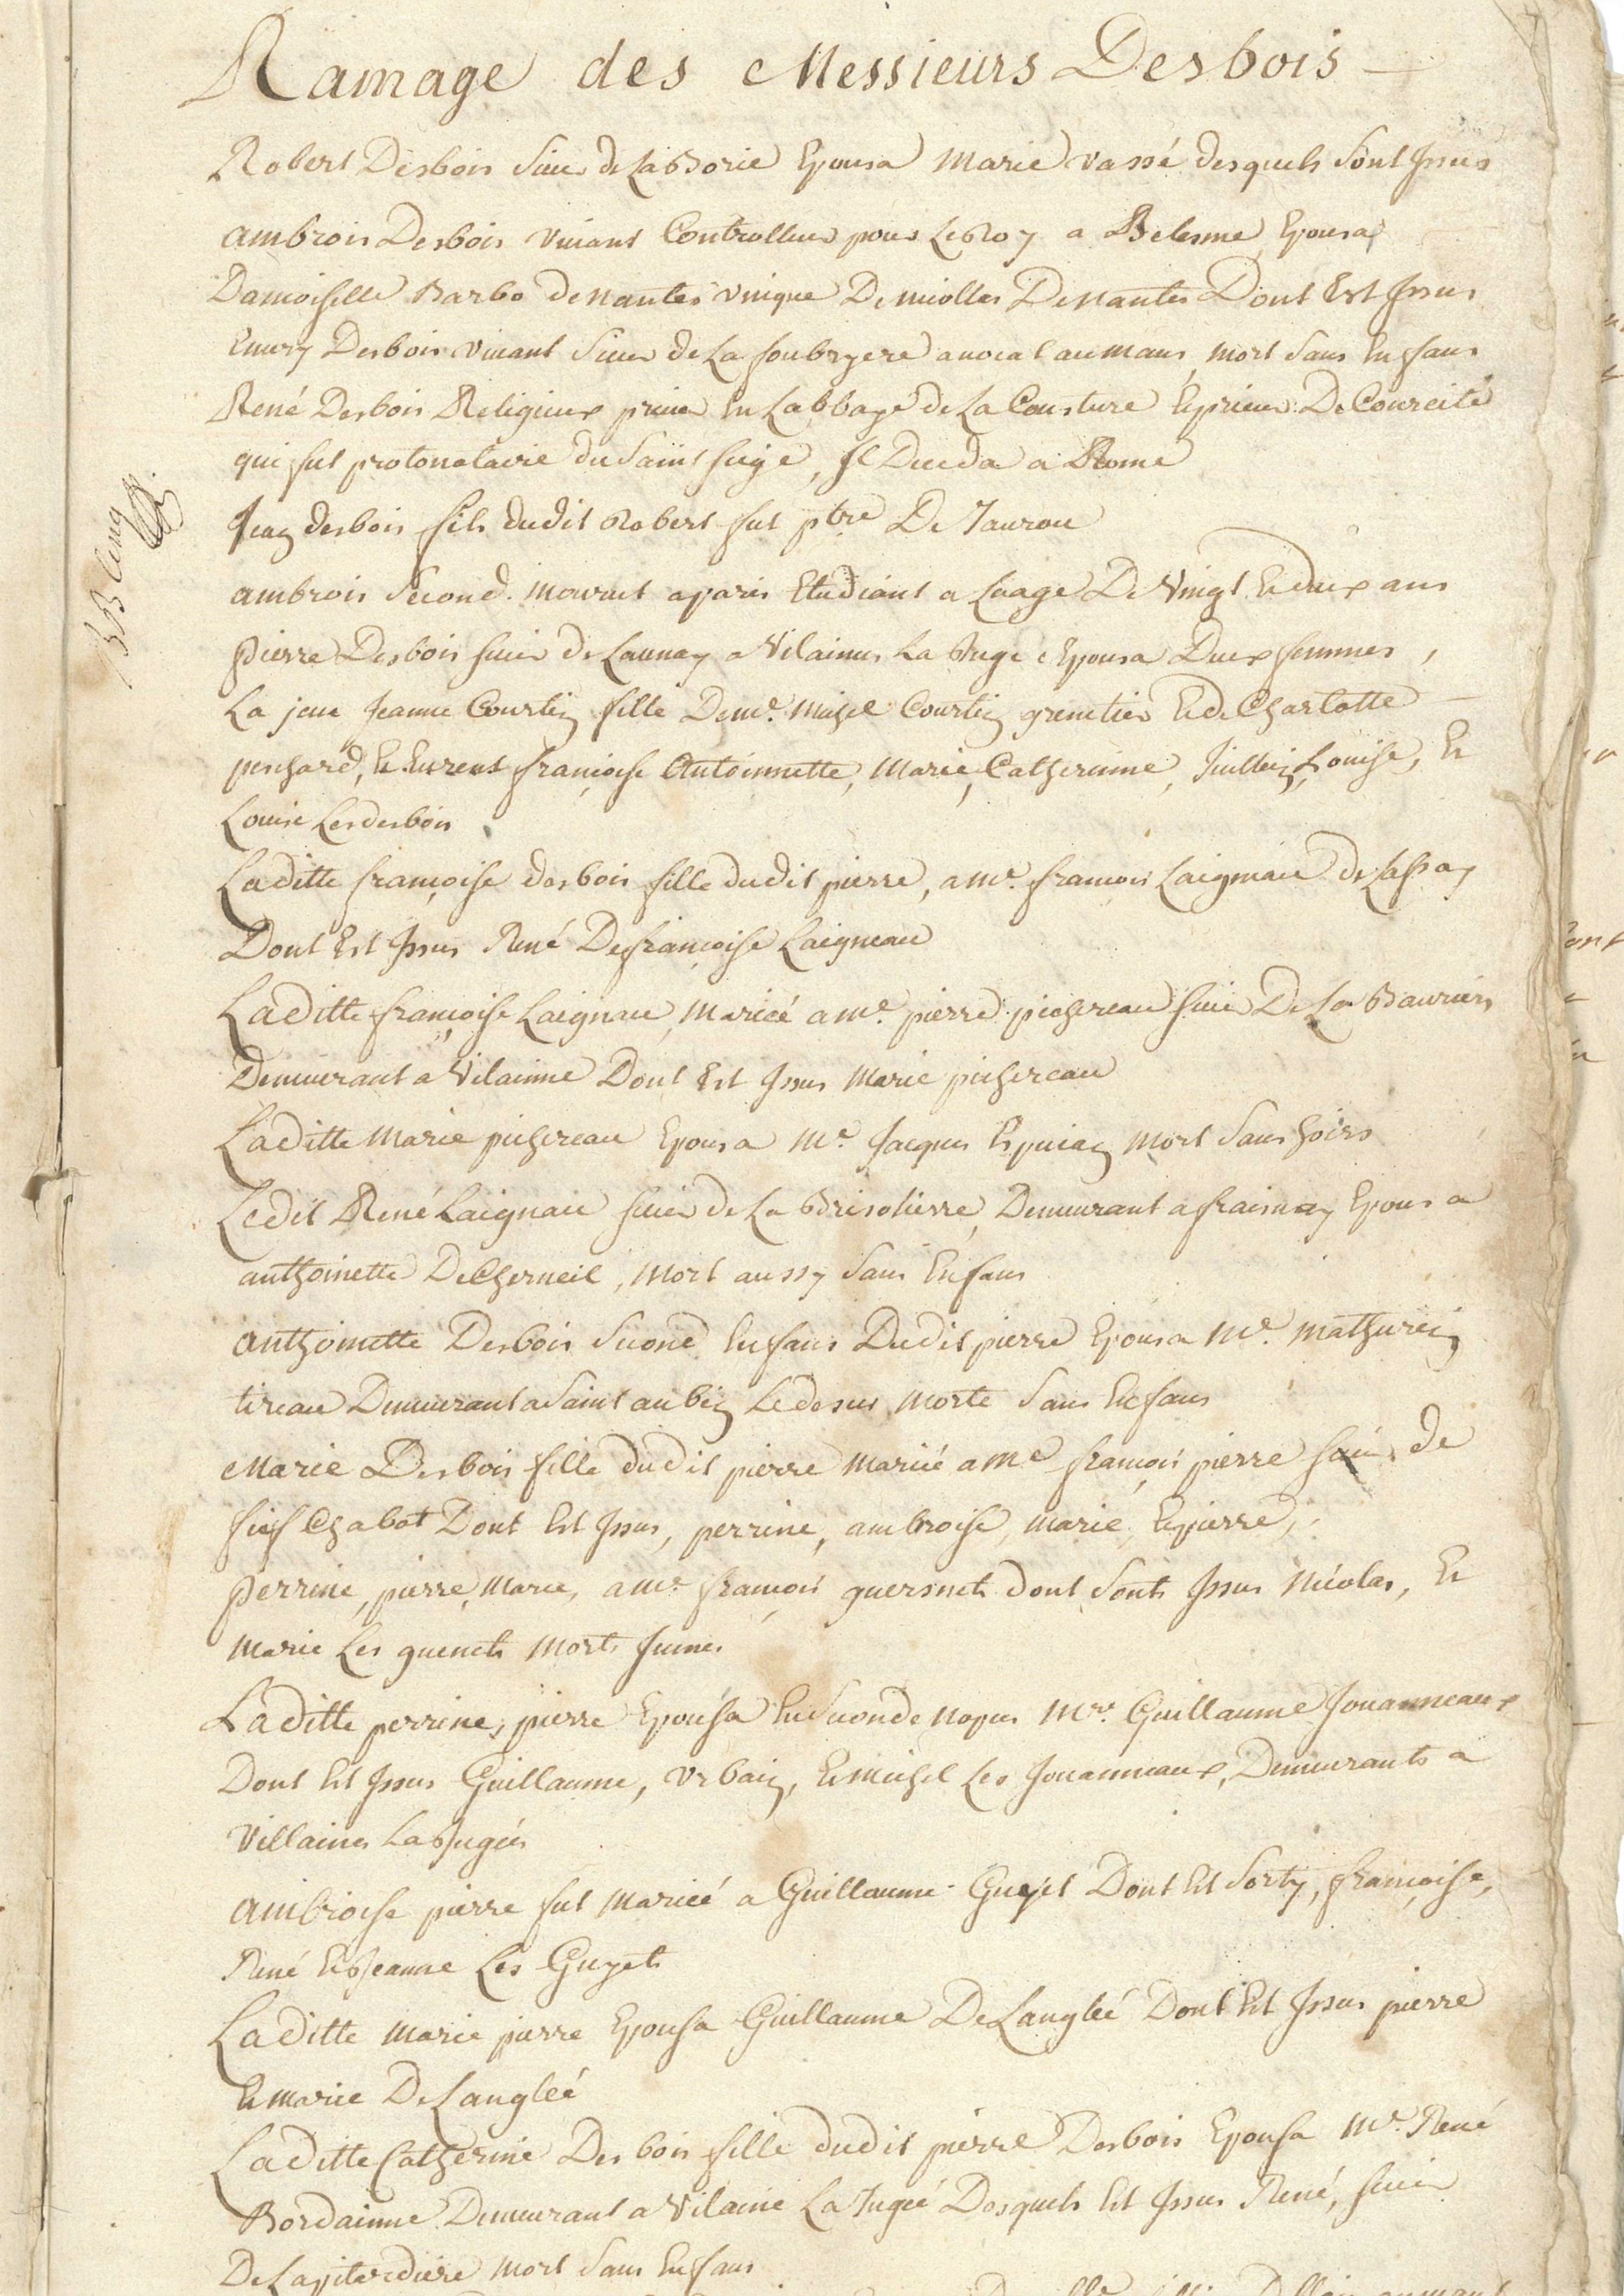 Ramage des Messieurs Desbois
Robert Desbois Sieur de La Borie Epousa Marie vassé desquels Sont Jssus
ambrois Desbois vivant Controlleur pour Le Roy a Belesme Epousa
Damoiselle Barbo de nantes vnique De miolles De nantes Dont Est Jssus
Emery Desbois vivant Sieur de La foubrgere avocat au mans, mort Sans Enfans
René Desbois Religieux prieur En Labbaye de La Cousture Et prieur De Courcité
qui fut protonotaire du Saint Siege, Jl Deceda a Rome
Jean desbois fils dudit Robert fut ptre De Taurou
ambrois Second. mourut a paris Etudiant a Laage De Vingt Et deux ans
pierre Desbois sieur de Launay a Vilaines La Juge Epousa Deux femmes,
La jere Jeanne Courtin fille De me. Michel Courtin grenetier Et de Charlotte
penchard, Et Eurent françoise Antoinnette, Marie, Catherinne, Juillen, Louise, Et
Louise Les desbois
Laditte françoise des bois fille dudit pierre, a me. françois Laigneau de Lassay
Dont Est Jssus René De françoise Laigneau
Laditte françoise Laignau, mariée a me. pierre pichereau sieur De La Bauriere
Demeurant a Vilainne Dont Est Jssus Marie pichereau
Laditte Marie pichereau Epousa Me. Jacques Espinay mort Sans hoirs
Ledit René Laignau sieur de La Brisoliere, Demeurant a fraisnay Epousa
anthoinette De Cherneil, mort aussy Sans Enfans
anthoinette Desbois Second Enfans Dudit pierre Epousa Me. mathurin
tireau Demeurant a Saint aubin Ledesus morte Sans Enfans
Marie Desbois fille dudit pierre mariée a Me françois pierre sieur de
fief Chabot Dont Est Jssus, perrine, ambroise, marie, Et pierre,
Perrine, pierre, Marie, a me. françois guersnets dont Sonts Jssus Nicolas, Et
Marie Les guenets morts Jeunes
Laditte perrine, pierre Epousa En Seconde nopces Mre. Guillaume Jouanneaux
Dont Est Jssus Guillaume, vrbain, Et Michel Les Jouanneaux, Demeurants a
Villaines La Jugées
ambroise pierre fut mariée a Guillaume Guyet Dont Est Sorty, françoise,
René Et Jeanne Les Guyets
Laditte marie pierre Epousa Guillaume De Langlée Dont Est Jssus pierre
Et marie De Langlée
Laditte Catherine Des bois fille dudit pierre Desbois Epousa Mr. René
Bordainne Demeurant a Vilaine La Jugée Desquels Est Jssus René, sieur
De La piterdiere mort Sans Enfans